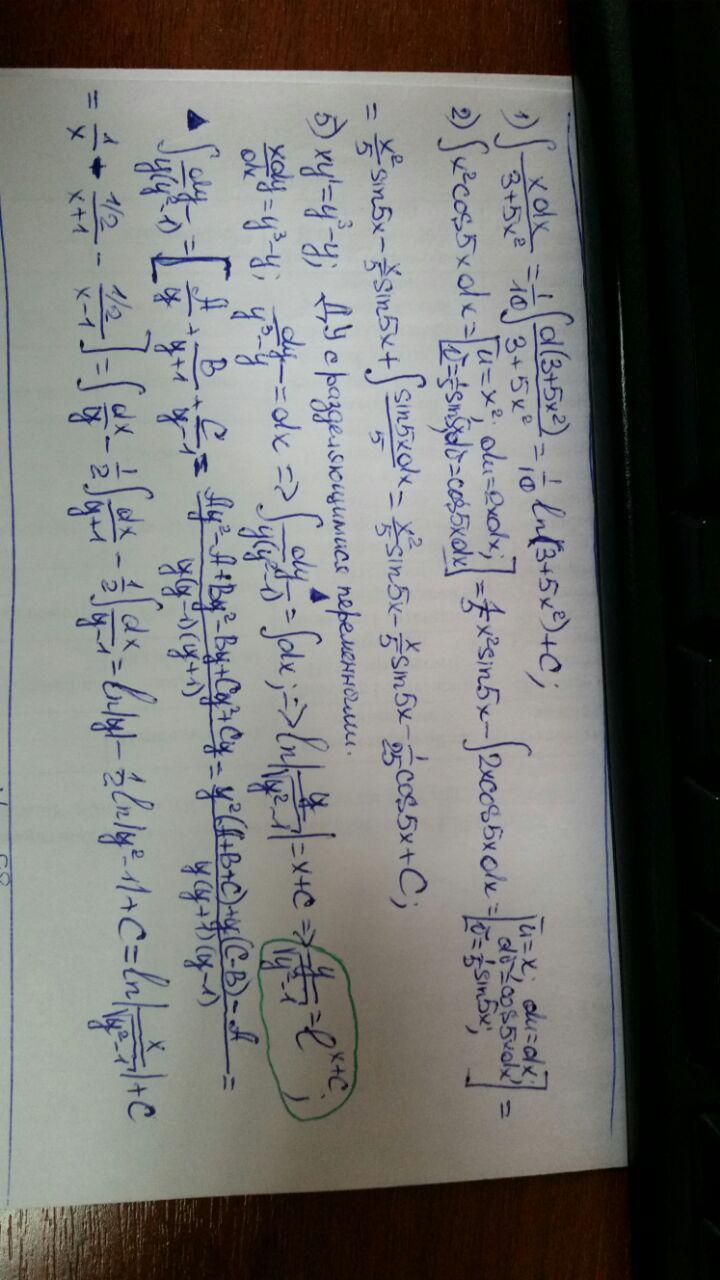 1) ∫ xdx/(3+5x²) = 1/10 ∫ d(3+5x²)/(3+5x²) = 1/10 ln(3+5x²)+C;
2) ∫x²cos5xdx = [u=x²; du=2xdx; v=1/5 sin5x; dv=cos5xdx] = 1/5 x²sin5x - ∫2xcos5xdx = [u=x; du=dx; dv=cos5xdx; v=1/5 sin5x;] =
= x²/5 sin5x - x/5 sin5x + ∫ sin5xdx/5 = x²/5 sin5x - x/5 sin5x - 1/25 cos5x + C;
5) xy'=y³-y; ДУ с разделяющимися переменными.
xdy/dx = y³-y; dy/(y³-y) = dx => ∫ dy/(y(y²-1)) ▲ = ∫dx; => ln|y/√(y²-1)| = x+c => y/√(y²-1) = e^(x+c);
▲ ∫ dy/(y(y²-1)) = [A/y + B/(y+1) + C/(y-1) = (Ay²-A+By²-By+Cy²+Cy)/(y(y-1)(y+1)) = (y²(A+B+C)+y(C-B)-A)/(y(y+1)(y-1)) =
= 1/x + (1/2)/(x+1) - (1/2)/(x-1)] = ∫dx/y - 1/2 ∫dx/(y+1) - 1/2 ∫dx/(y-1) = ln|y| - 1/2 ln|y²-1| + C = ln|x/√(y²-1)| + C